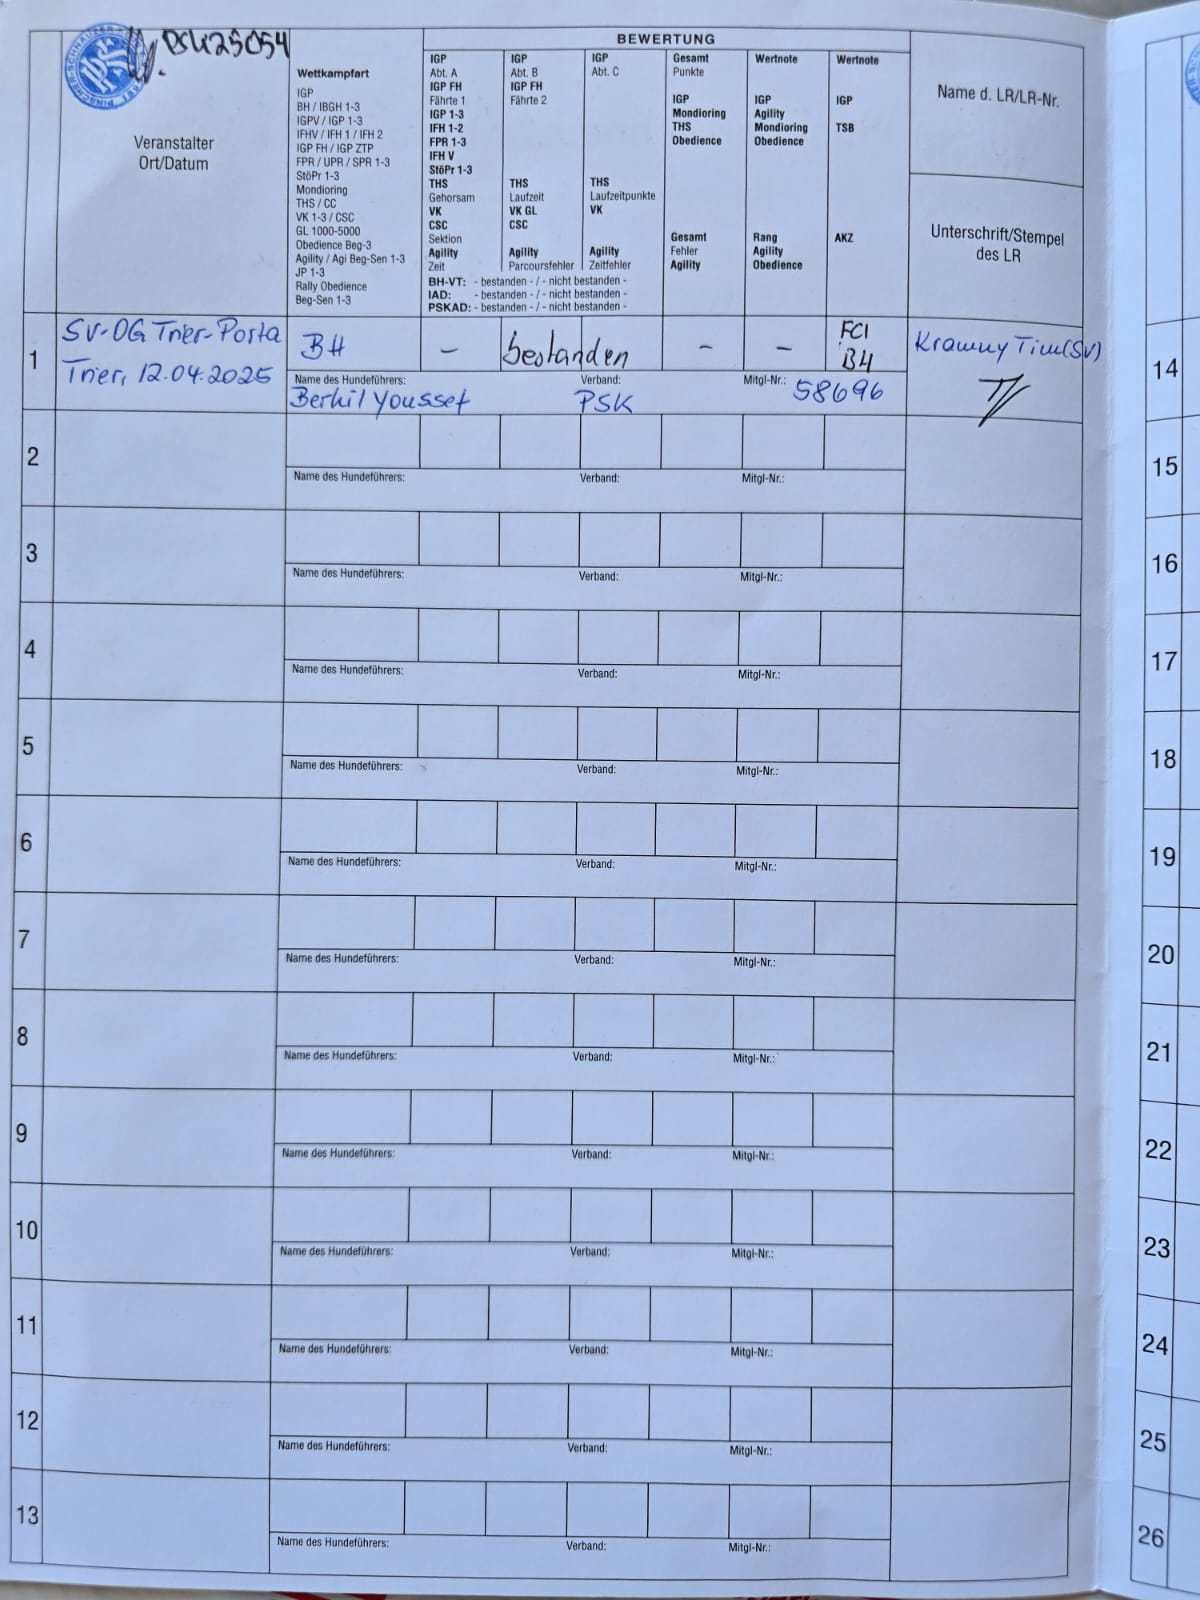 PSK25054
BEWERTUNG
Veranstalter
Ort/Datum
Wettkampfart
IGP
BH / IBGH 1-3
IGPV / IGP 1-3
IFHV / IFH 1 / IFH 2
IGP FH / IGP ZTP
FPR / UPR / SPR 1-3
StöPr 1-3
Mondioring
THS / CC
VK 1-3 / CSC
GL 1000-5000
Obedience Beg-3
Agility / Agi Beg-Sen 1-3
JP 1-3
Rally Obedience
Beg-Sen 1-3
IGP
Abt. A
IGP FH
Fährte 1
IGP 1-3
IFH 1-2
FPR 1-3
IFH V
StöPr 1-3
THS
Gehorsam
VK
CSC
Sektion
Agility
Zeit
IGP
Abt. B
IGP FH
Fährte 2
THS
Laufzeit
VK GL
CSC
Agility
Parcoursfehler
IGP
Abt. C
THS
Laufzeitpunkte
VK
Agility
Zeitfehler
BH-VT: - bestanden - / - nicht bestanden -
IAD: - bestanden - / - nicht bestanden -
PSKAD: - bestanden - / - nicht bestanden -
Gesamt
Punkte
IGP
Mondioring
THS
Obedience
Gesamt
Fehler
Agility
Wertnote
IGP
Agility
Mondioring
Obedience
Rang
Agility
Obedience
Wertnote
IGP
TSB
AKZ
Name d. LR/LR-Nr.
Unterschrift/Stempel
des LR
1
SV-OG Trier-Porta
Trier, 12.04.2025
BH – bestanden – – FCI
BH
Name des Hundeführers: Verband: Mitgl-Nr.:
Berhil Youssef PSK 58696
Tim (SV)
2
Name des Hundeführers: Verband: Mitgl-Nr.:
3
Name des Hundeführers: Verband: Mitgl-Nr.:
4
Name des Hundeführers: Verband: Mitgl-Nr.:
5
Name des Hundeführers: Verband: Mitgl-Nr.:
6
Name des Hundeführers: Verband: Mitgl-Nr.:
7
Name des Hundeführers: Verband: Mitgl-Nr.:
8
Name des Hundeführers: Verband: Mitgl-Nr.:
9
Name des Hundeführers: Verband: Mitgl-Nr.:
10
Name des Hundeführers: Verband: Mitgl-Nr.:
11
Name des Hundeführers: Verband: Mitgl-Nr.:
12
Name des Hundeführers: Verband: Mitgl-Nr.:
13
Name des Hundeführers: Verband: Mitgl-Nr.:
14
15
16
17
18
19
20
21
22
23
24
25
26